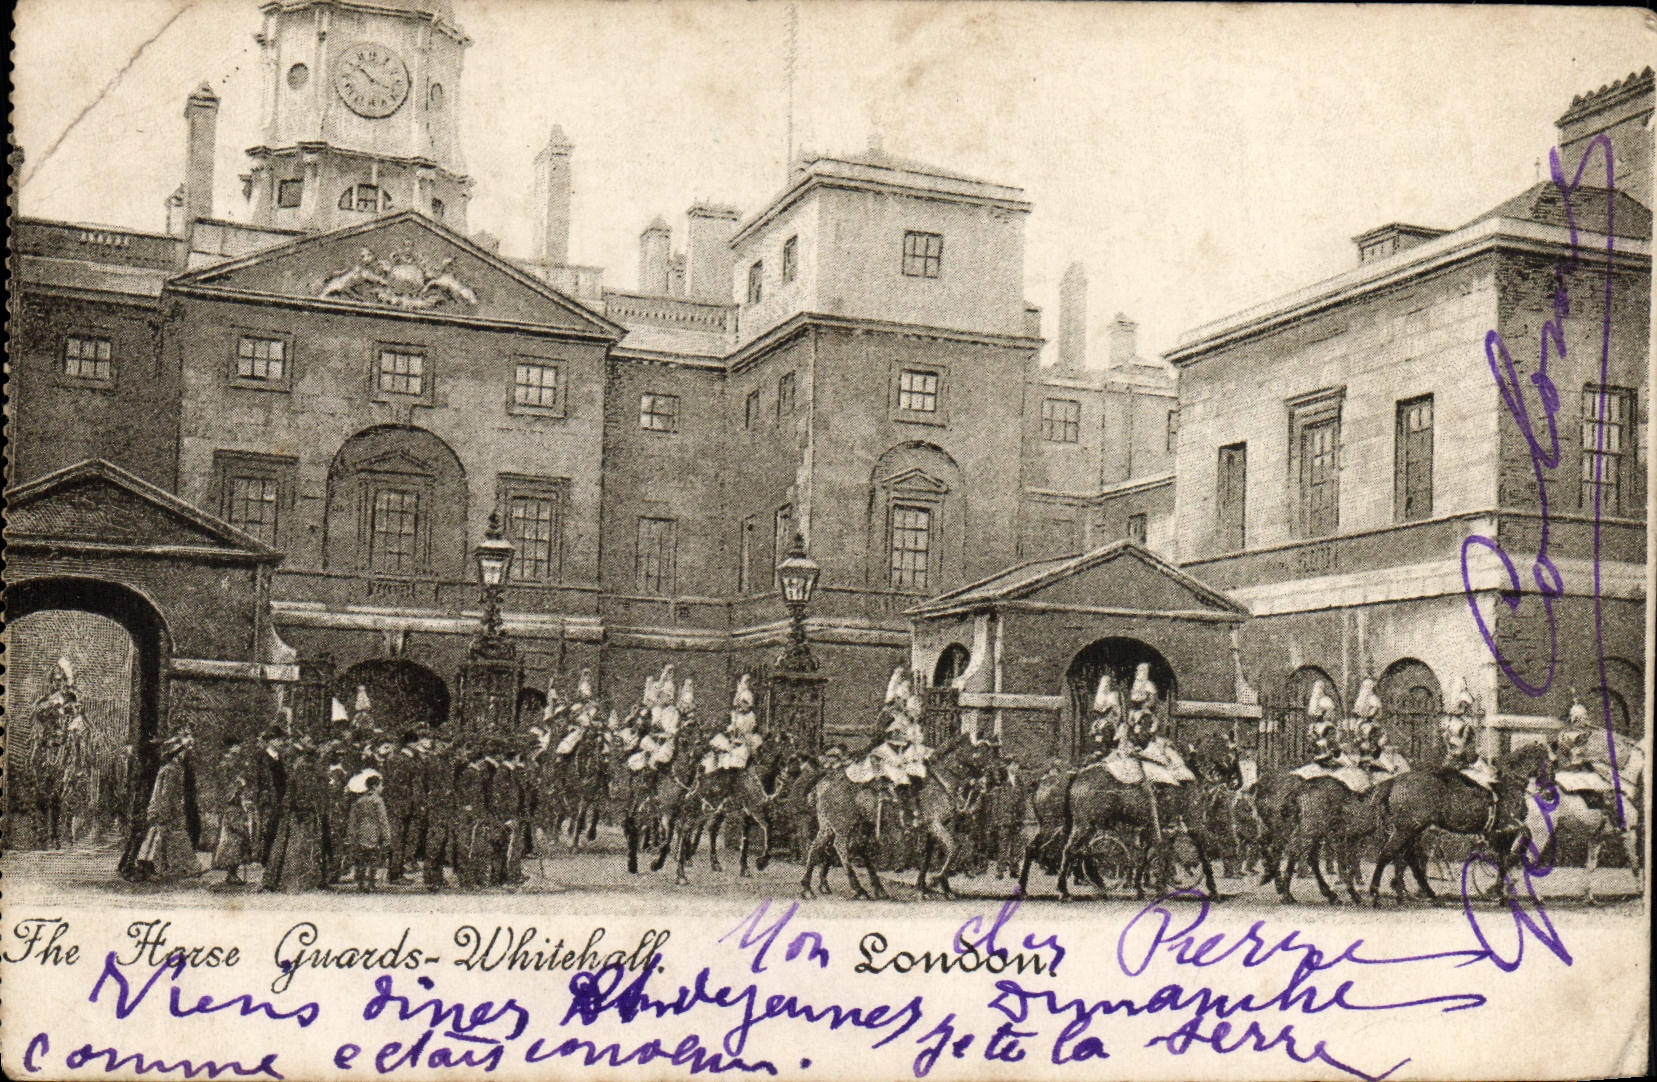 The Horse Guards-Whitehall. London.
Mon cher Pierre
Viens diner dejeuner, Dimanche
comme c'etais convenu. Je te la serre